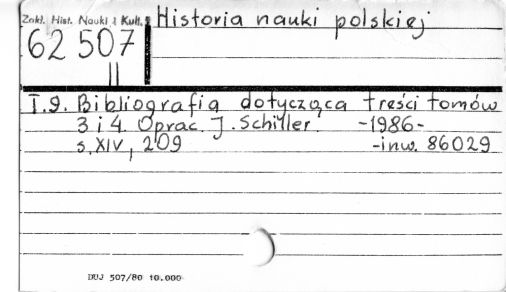 Zakł. Hist. Nauki i Kult.
Historia nauki polskiej
62 507
II
T.9. Bibliografia dotycząca treści tomów
3 i 4. Oprac. J. Schiller -1986-
s. XIV, 209 -inw. 86029
DUJ 507/80 10.000